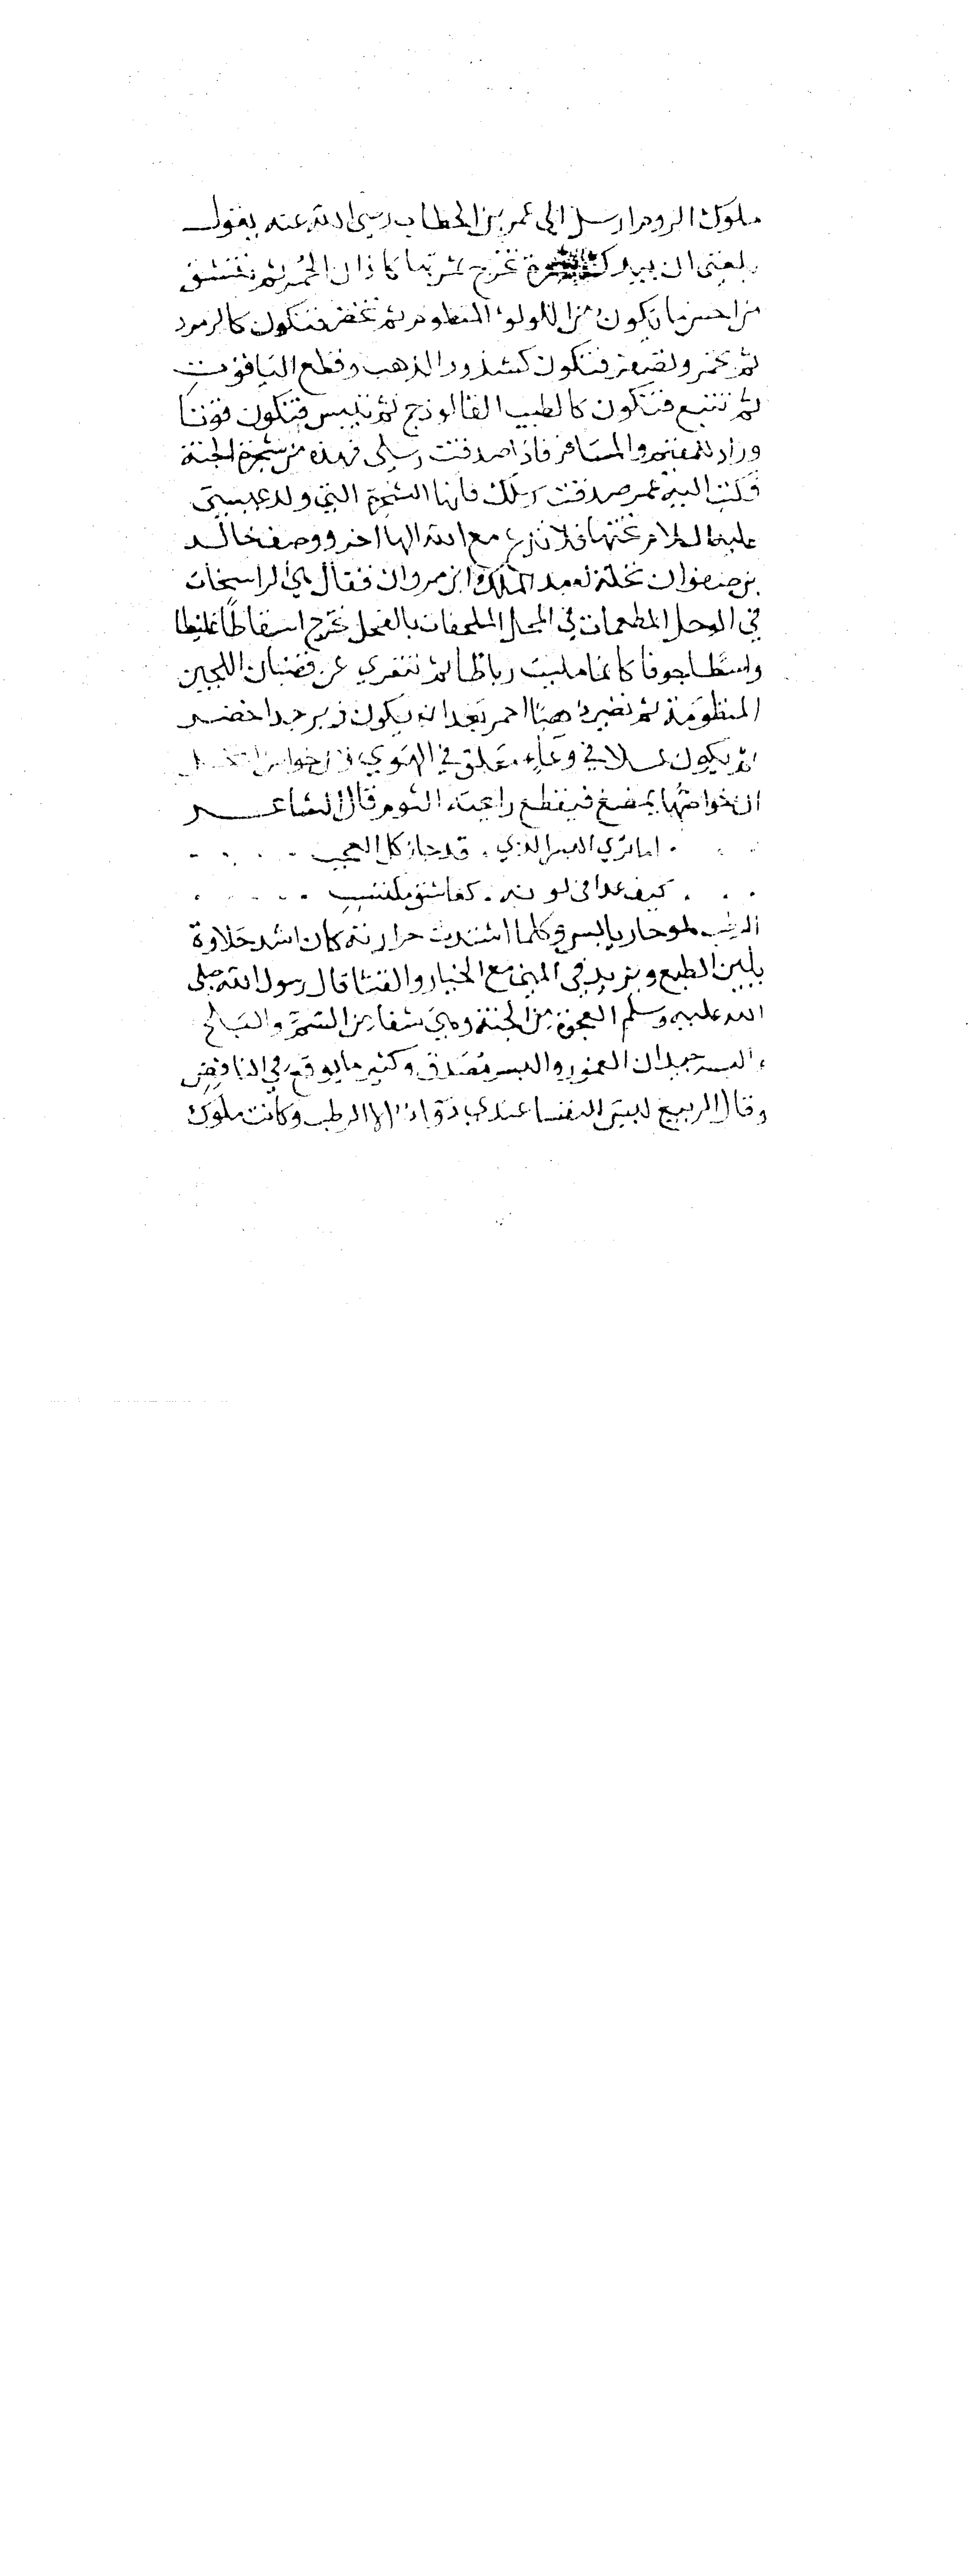 ملوك الروم ارسل الى عمر بن الخطاب رضي الله عنه يقول
بلغني ان ببلدك شجرة تخرج ثمرتها كاذان الحمر ثم تنشق
من احسن ما يكون من اللولو المنظوم ثم تخضر فتكون كالزمرد
ثم تحمر وتصفر فتكون كشذور الذهب وقطع الياقوت
ثم تينع فتكون كالطيب الفالوذج ثم تيبس فتكون قوتا
وزاد للمقيم والمسافر فاذا صدقت رسلي فهذه من شجرة الجنة
فكتب اليه عمر صدقت رسلك فانها الشجرة التي ولد عيسى
عليه السلام تحتها فلا تدع مع الله الها اخر ووصف خالد
بن صفوان نخلة لعبد الملك ابن مروان فقال هي الراسخات
في الوحل المطعمات في المحل الملحقات بالفحل تخرج اسقاطا غليظا
واسطا جوفا كانما مليت رباطا ثم تتفري عن قضبان اللجين
المنظومة ثم تصير ذهبا احمر بعد ان يكون زبرجدا اخضر
ثم يكون عسلا في وعاء معلق في الهوي
ان خواصها يمضغ فيقطع رايحة الثوم قال الشاعر
اما تري البسر الذي . قد حاز كل العجب
كيف غدا في لونه . كعاشق مكتئب
الرطب هو حار بالبسر وكلما اشتدت حرارته كان اشد حلاوة
يلين الطبع ويزيد في المني مع الخيار والقثا قال رسول الله صلى
الله عليه وسلم العجوة من الجنة وهي شفا من السم والبلح
والبسر جيدان العمور والبسر مصدق وكثير ما يوقع في النافض
وقال الربيع ليس للنفسا عندي دوا الا الرطب وكانت ملوك